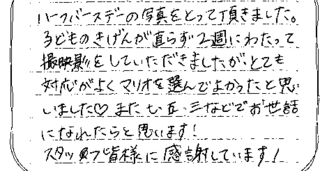 ハーフバースデーの写真をとって頂きました。
子どものきげんが直らず2週にわたって
撮映影をしていただきましたが、とても
対応がよくマリオを選んでよかったと思
いました♡ また七・五・三などでお世話
になれたらと思います!
スタッフ皆様に感謝しています!